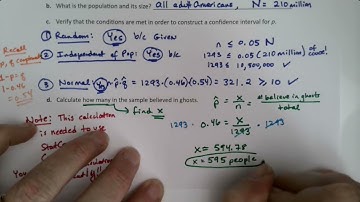 b. What is the population and its size? All adult Americans, N = 210 million
c. Verify that the conditions are met in order to construct a confidence interval for p.
Recall
p̂, q̂ complement
1-p̂ = q̂
1-0.46
= 0.54
① Random: Yes b/c Given
② Independent of Pop: Yes b/c
n ≤ 0.05 N
1293 ≤ 0.05 (210 million)
1293 ≤ 10,500,000 ✓
③ Normal: n·p̂·q̂ = 1293·(0.46)(0.54) = 321.2 ≥ 10 ✓
d. Calculate how many in the sample believed in ghosts.
→ find x
p̂ = x/n = # believe in ghosts / total
Note: This calculation
is needed to use
1293 · 0.46 = x/1293 · 1293
x = 594.78
x = 595 people